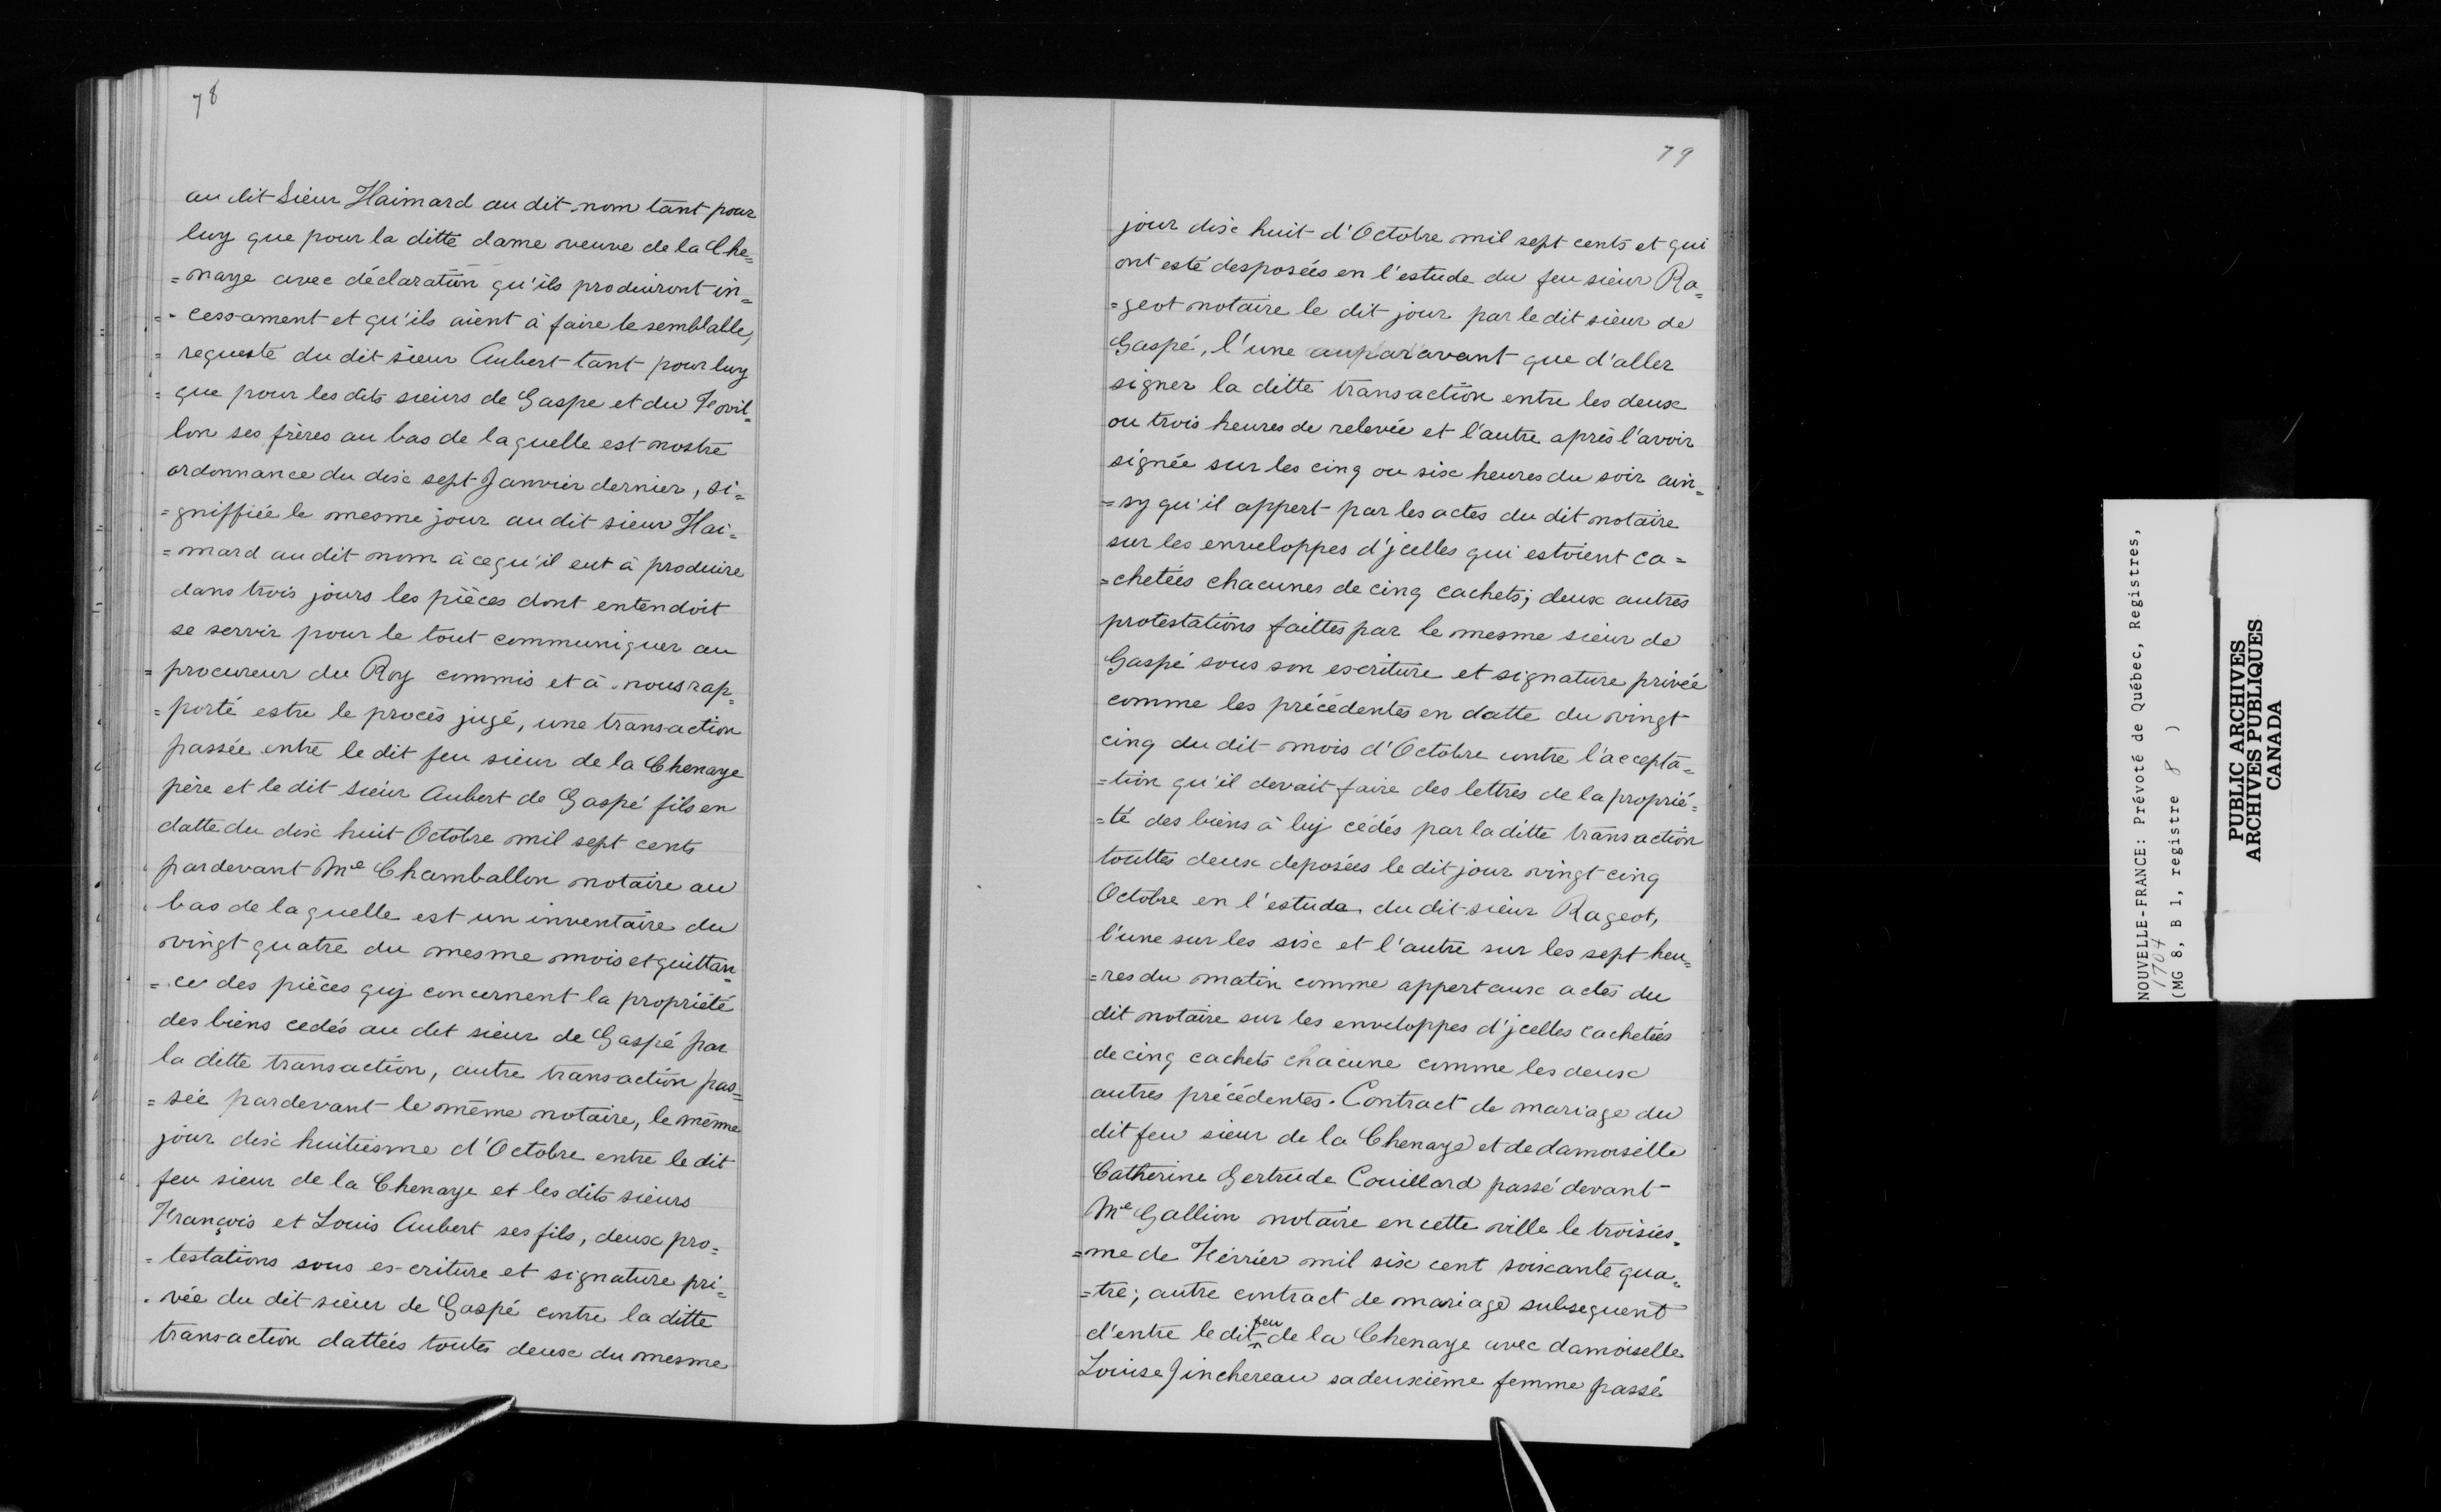 78
au dit Sieur Haimard au dit nom tant pour
luy que pour la ditte dame veuve de la Che=
=naye avec déclaration qu'ils produiront in=
=cessament et qu'ils aient à faire le semblable,
requeste du dit sieur Aubert tant pour luy
que pour les dits sieurs de Gaspe et du Foril=
lon ses frères au bas de laquelle est nostre
ordonnance du dix sept Janvier dernier, si=
=gniffiée le mesme jour au dit sieur Hai=
=mard au dit nom à ce qu'il eut à produire
dans trois jours les pièces dont entendoit
se servir pour le tout communiquer au
procureur du Roy commis et à nous rap=
=porté estre le procès jugé, une transaction
passée entre le dit feu sieur de la Chenaye
père et le dit sieur Aubert de Gaspé fils en
datte du dix huit Octobre mil sept cents
pardevant Me Chamballon notaire au
bas de laquelle est un inventaire du
vingt quatre du mesme mois et quittan=
=ce des pièces quj concernent la propriété
des biens cedés au dit sieur de Gaspé par
la ditte transaction, autre transaction pas=
=sée pardevant le même notaire, le même
jour dix huitiesme d'Octobre entre le dit
feu sieur de la Chenaye et les dits sieurs
François et Louis Aubert ses fils, deux pro=
=testations sous escriture et signature pri=
=vée du dit sieur de Gaspé contre la ditte
transaction dattées toutes deux du mesme
79
jour dix huit d'Octobre mil sept cents et qui
ont esté desposées en l'estude du feu sieur Ra=
=geot notaire le dit jour par le dit sieur de
Gaspé, l'une auparavant que d'aller
signer la ditte transaction entre les deux
ou trois heures de relevée et l'autre après l'avoir
signée sur les cinq ou six heures du soir ain=
=sy qu'il appert par les actes du dit notaire
sur les enveloppes d'jcelles qui estoient ca=
=chetées chacunes de cinq cachets; deux autres
protestations faittes par le mesme sieur de
Gaspé sous son escriture et signature privée
comme les précédentes en datte du vingt
cinq du dit mois d'Octobre contre l'accepta=
=tion qu'il devait faire des lettres de la proprié=
=té des biens à luj cédés par la ditte transaction
touttes deux deposées le dit jour vingt cinq
Octobre en l'estude du dit sieur Rageot,
l'une sur les six et l'autre sur les sept heu=
=res du matin comme appert aux actes du
dit notaire sur les enveloppes d'jcelles cachetées
de cinq cachets chacune comme les deux
autres précédentes. Contract de mariage du
dit feu sieur de la Chenaye et de damoiselle
Catherine Gertrude Couillard passé devant
Me Gallion notaire en cette ville le troisies=
=me de Février mil six cent soixante qua=
=tre; autre contract de mariage subsequent
d'entre le dit feu de la Chenaye avec damoiselle
Louise Jinchereau sa deuxième femme passé
NOUVELLE-FRANCE: Prévoté de Québec, Registres,
1704
(MG 8, B 1, registre 8 )
PUBLIC ARCHIVES
ARCHIVES PUBLIQUES
CANADA